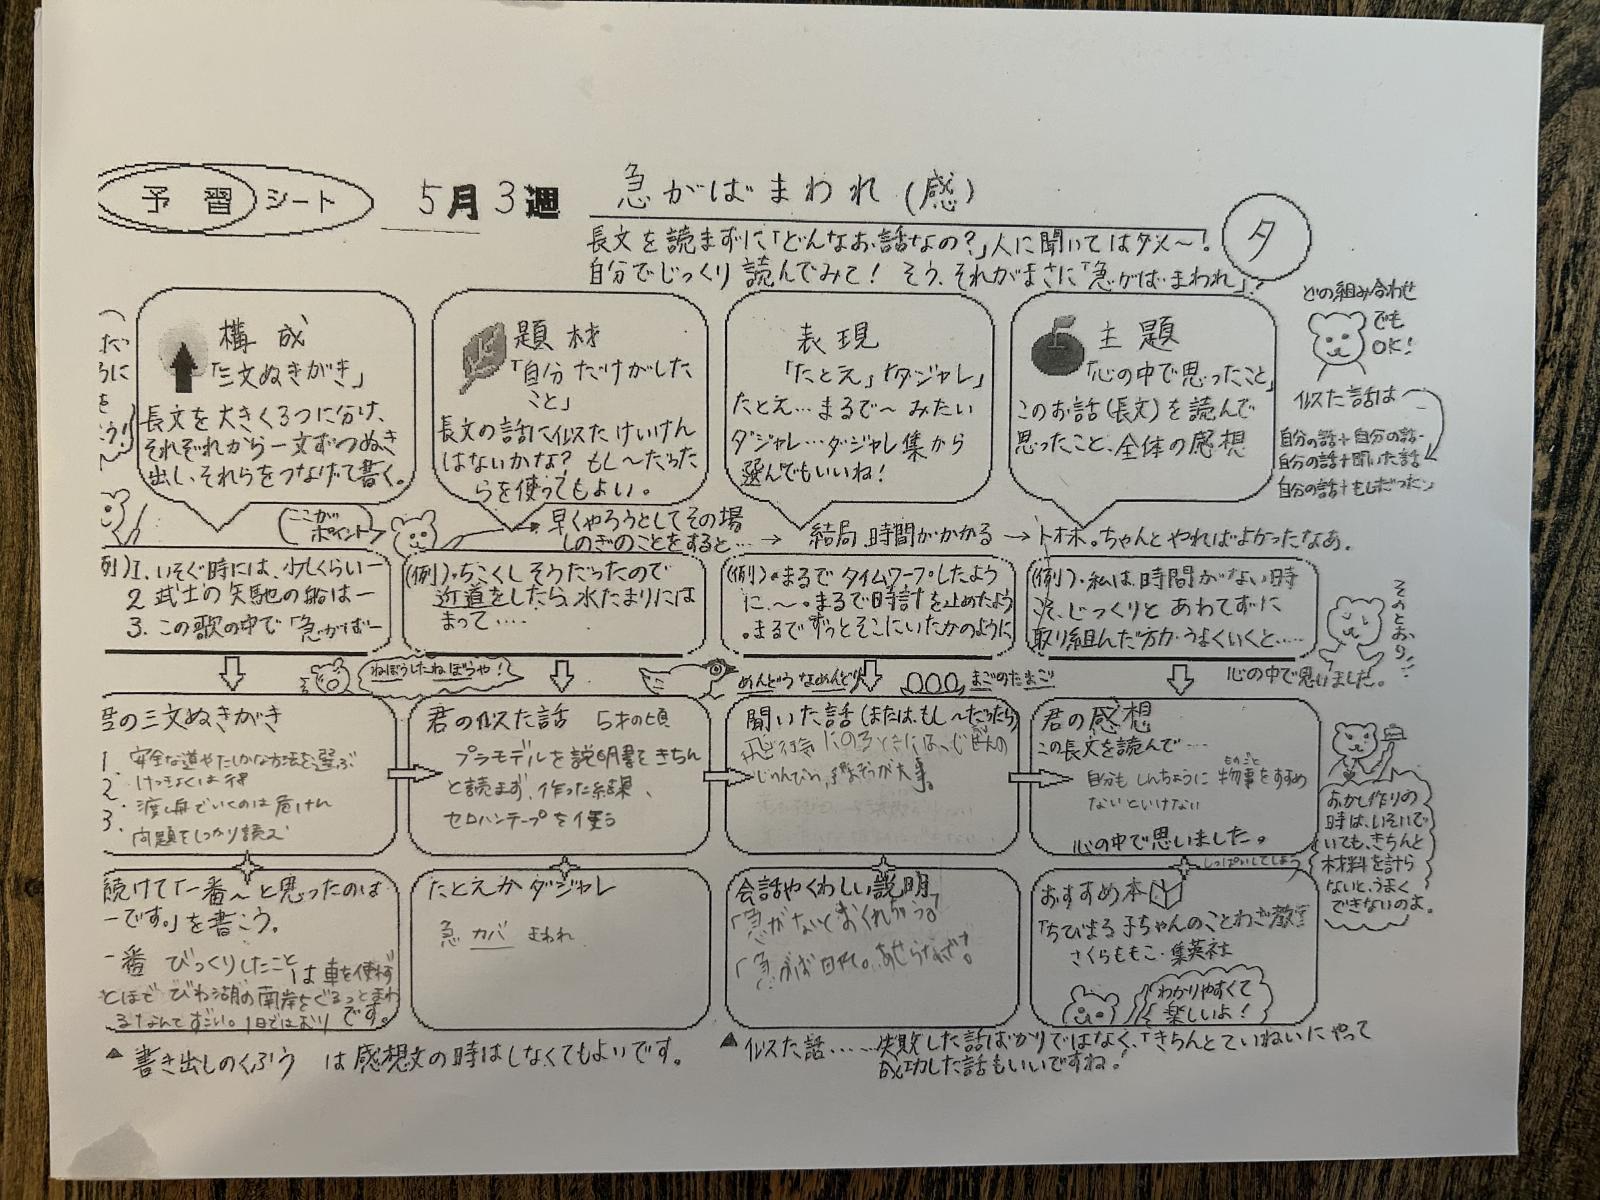 予習シート
5月3週
急がばまわれ(感)
タ
長文を読まずに「どんなお話なの?」人に聞いてはダメ〜!
自分でじっくり読んでみて! そう、それがまさに「急がばまわれ」!
構成
「三文ぬきがき」
長文を大きく3つに分け、
それぞれから一文ずつぬき
出し、それらをつなげて書く。
題材
「自分だけがした
こと」
長文の話に似たけいけん
はないかな? もし〜たらった
らを使ってもよい。
表現
「たとえ」「ダジャレ」
たとえ…まるで〜みたい
ダジャレ…ダジャレ集から
選んでもいいね!
主題
「心の中で思ったこと」
このお話(長文)を読んで
思ったこと、全体の感想
どの組み合わせ
でも
OK!
似た話は
自分の話+自分の話
自分の話+聞いた話
自分の話+もしだったら
ここが
ポイント
早くやろうとしてその場
しのぎのことをすると…
→ 結局、時間がかかる
→トホホ。ちゃんとやればよかったなあ。
例)1. いそぐ時には、少しくらいー
2 武士の矢馳の船はー
3. この歌の中で「急がばー
(例)・ちこくしそうだったので
近道をしたら、水たまりには
まって……
(例)・まるでタイムワープしたよう
に、〜。まるで時計を止めたよう
。まるでずっとそこにいたかのように
(例)・私は、時間がない時
こそ、じっくりとあわてずに
取り組んだ方がうまくいくと……
心の中で思いました。
そのとおり!!
ねぼうしたねぼうや!
めんどうなめんどり
まごのたまご
の三文ぬきがき
1 安全な道やたしかな方法を選ぶ
2. けっきょくは得
3. 渡し舟でいくのは危けん
問題をしっかり読え
君の似た話 5才の頃
プラモデルを説明書をきちん
と読まず、作った結果、
セロハンテープを使う
聞いた話(または、もし〜だったら)
君の感想
この長文を読んで…
自分もしんちょうに物事をすすめ
ものごと
ないといけない
心の中で思いました。
しっぱいしてしまう
おかし作りの
時は、いそいで
いても、きちんと
材料を計ら
ないと、うまく
できないのよ。
続けて「一番〜と思ったのは
ーです。」を書こう。
一番 びっくりしたことは車を使わず
とほで びわ湖の南岸をぐるっとまわ
るなんてすごい。1日ではおり です。
たとえかダジャレ
急 カバ まわれ
会話やくわしい説明
「急がないとおくれちゃう」
おすすめ本
「ちびまる子ちゃんのことわざ教室
さくらももこ・集英社
わかりやすくて
楽しいよ!
▲書き出しのくふう は感想文の時はしなくてもよいです。
▲似た話……失敗した話ばかりではなく、「きちんとていねいにやって
成功した話もいいですね!